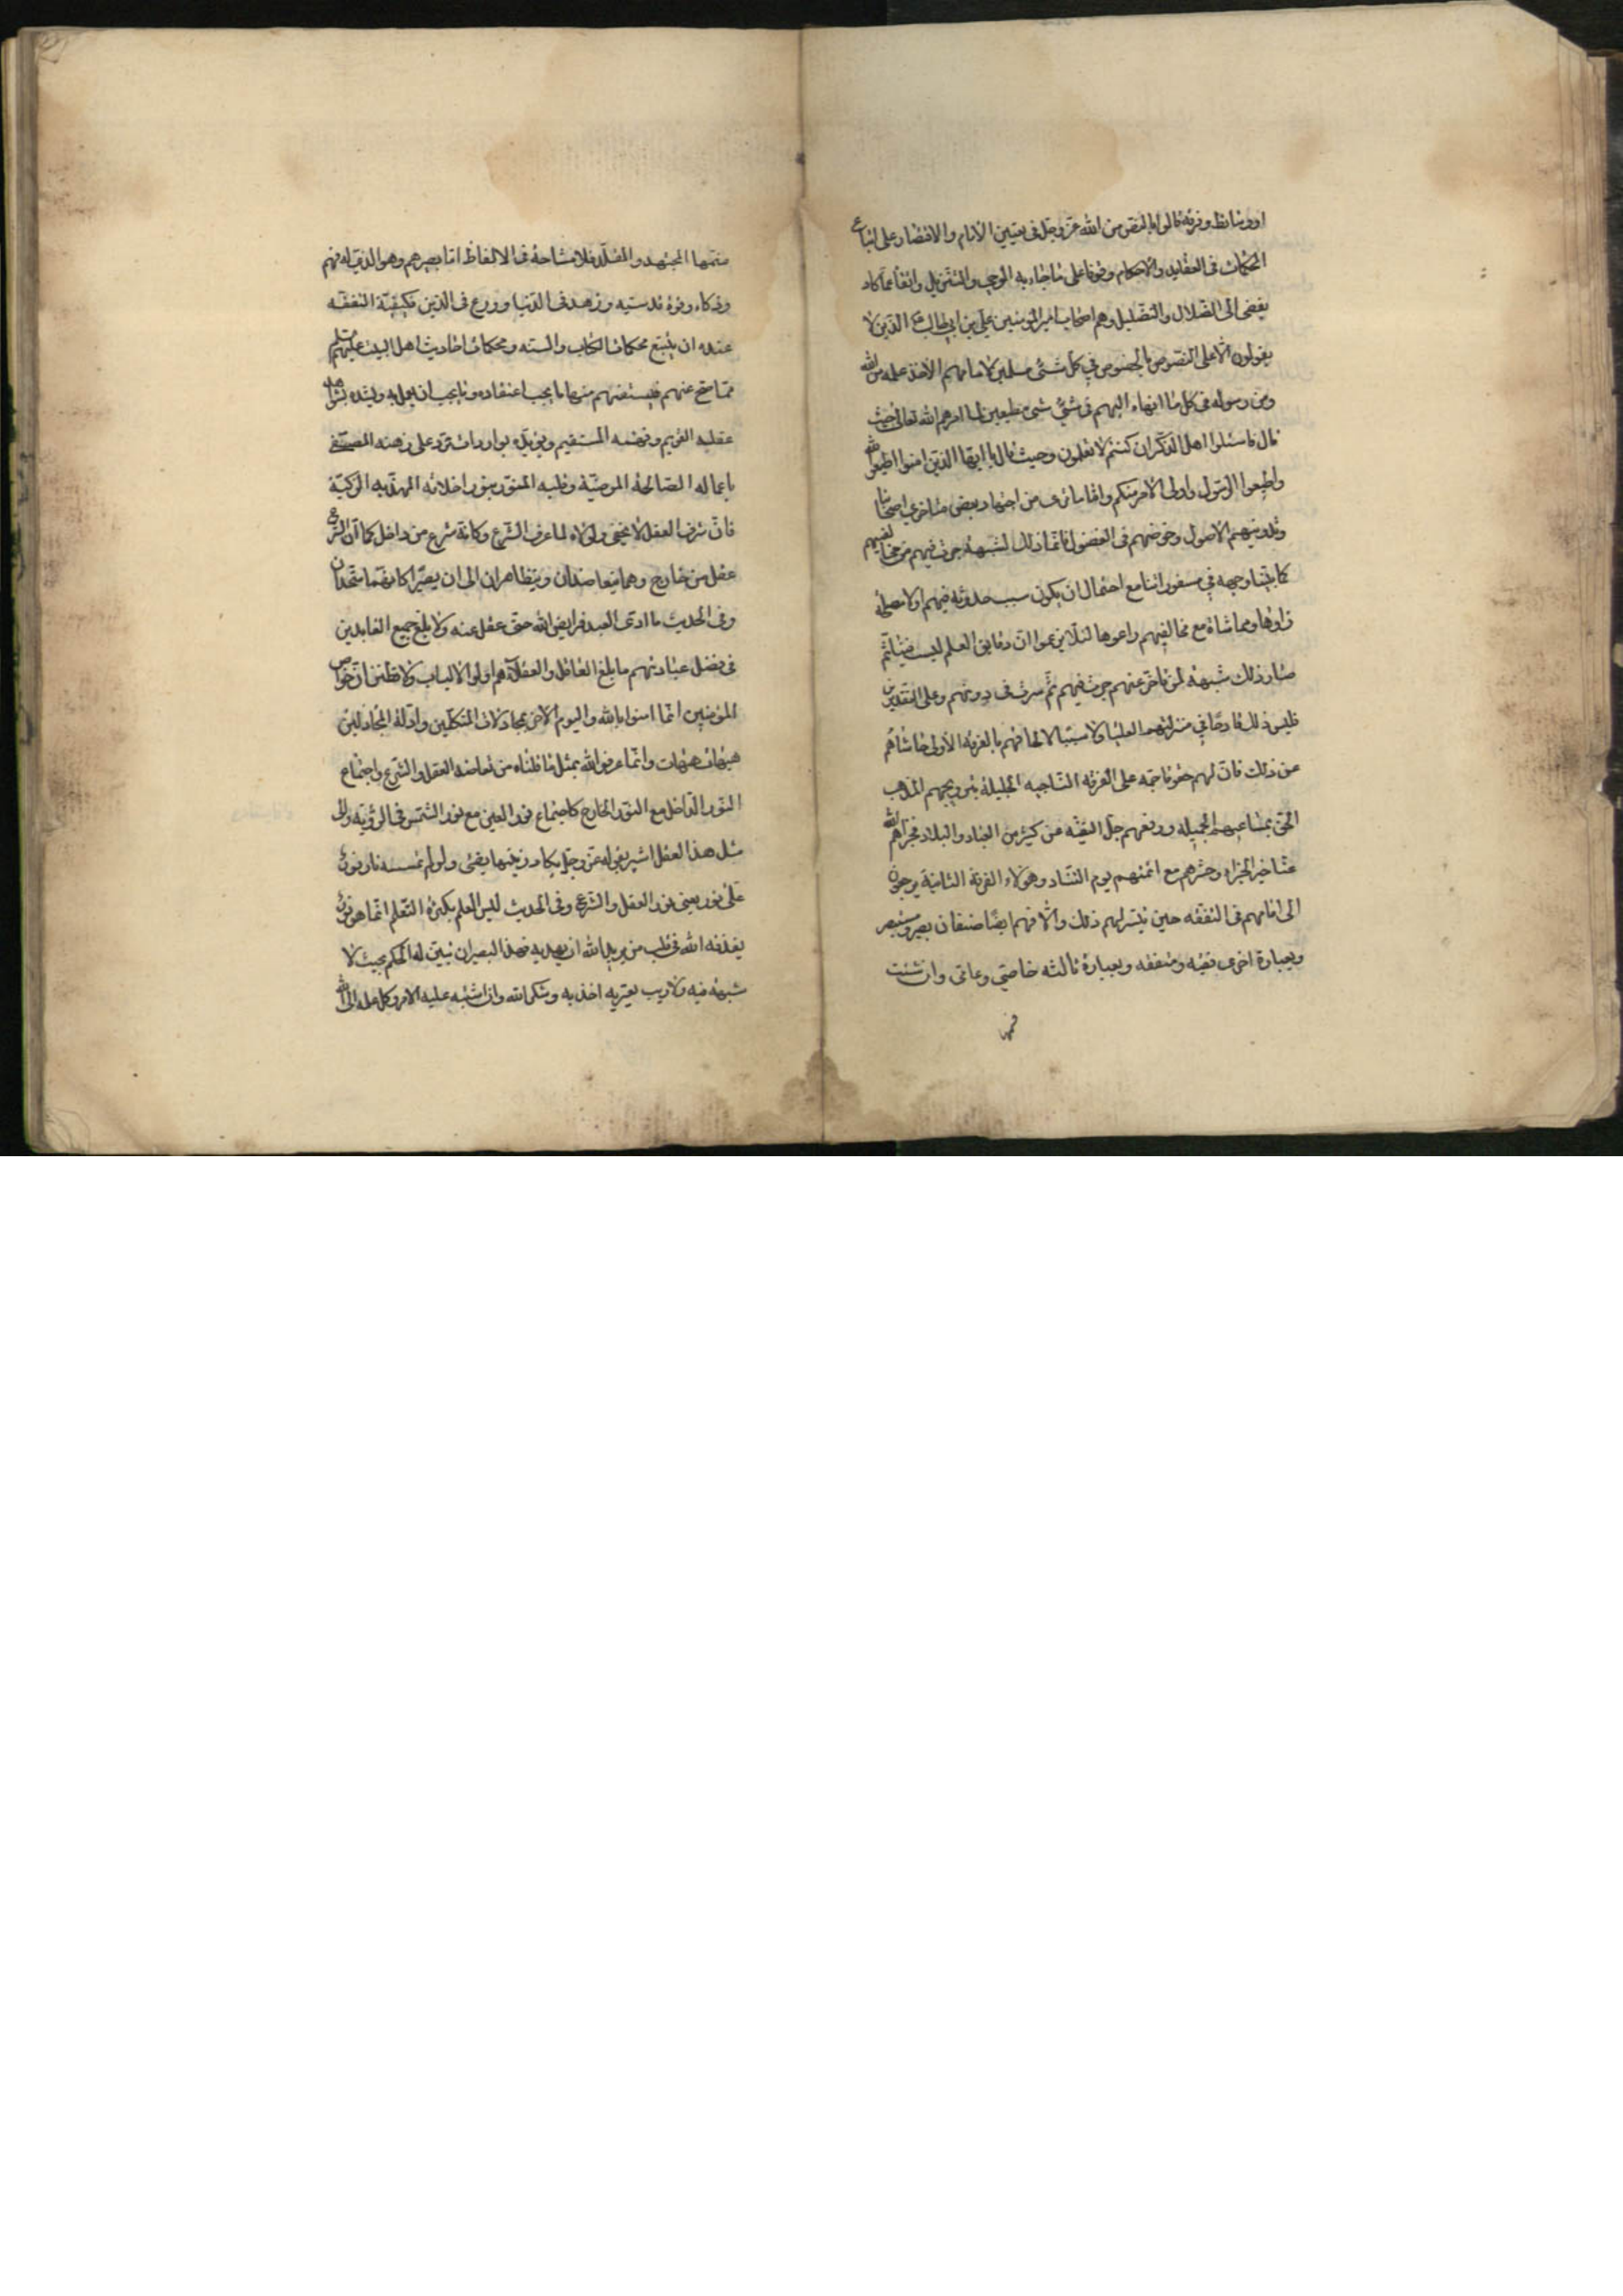 او وسائط وفرقة قالوا بالنص من الله عز وجل فی تعیین الامام والاقتصار علی اتباع
المحکمات فی العقاید والاحکام وقوفا علی ما جاء به الوحی والتنزیل واتقاء عما کاد
یفضی الی الضلال والتضلیل وهم اصحاب امیر المومنین علی بن ابی طالب ع الذین لا
یقولون الا علی النصوص بالخصوص فی کل شیء مسلمین لامامهم الآخذ علمه من الله
ومن رسوله فی کل ما انهاه الیهم فی شیء شیء مطیعین لما امرهم الله تعالی حیث
قال فاسئلوا اهل الذکر ان کنتم لا تعلمون وحیث قال یا ایها الذین امنوا اطیعوا الله
واطیعوا الرسول واولی الامر منکم واما ما تری من اجتهاد بعض متاخری اصحابنا
وتدوینهم الاصول وخوضهم فی الفضول فانما ذلک لشبهة جرت فیهم من مخالفیهم
کما بینا وجهه فی مسفوراتنا مع احتمال ان یکون سبب حدوثه فیهم اولا مصلحة
راوها ومماشاة مع مخالفیهم راعوها لئلا یزعموا ان دقایق العلم لیست فیئلتهم
صار ذلک شبهة لمن تاخر عنهم جرت فیهم ثم سرت فی دونهم وعلی التقدیرین
فلیس ذلک قادحا فی منزلتهم العلیا ولا سببا لالحاقهم بالفرقة الاولی حاشاهم
عن ذلک فان لهم حقوقا جمة علی الفرقة الناجیه الجلیلة بترویجهم المذهب
الحق بمساعیهم الجمیله ورفعهم جل التقیه عن کثیر من العباد والبلاد فجزاهم الله
عنا خیر الجزاء وحشرهم مع ائمتهم یوم التناد وهؤلاء الفرقة الثانیة یرجعون
الی امامهم فی التفقه حین تیسر لهم ذلک والا فهم ایضا صنفان بصیر ومستبصر
وبعبارة اخری فقیه ومتفقه وبعبارة ثالثه خاصی وعامی وان شئت
فسمها
منهما المجتهد والمقلد فلا مشاحة فی الالفاظ اما بصیرهم وهو الذی له فهم
وذکاء وقوة قدسیه وزهد فی الدنیا وورع فی الدین فکیفیة التفقه
عنده ان یتبع محکمات الکتاب والسنه ومحکمات احادیث اهل البیت علیهم السلم
مما صح عنهم فیستفهم منها ما یجب اعتقاده وما یجب ان یعمل به ویتده بشواهد
عقلیه القویم وفهمه المستقیم ویؤیده بواردات ترد علی ذهنه المصفی
باعماله الصالحة المرضیة وقلبه المنور بنور اخلاقه المهذبه الزکیة
فان شرف العقل لا یخفی ولولاه لما عرف الشرع وکانه شرع من داخل کما ان الشرع
عقل من خارج وهما یتعاضدان ویتظاهران الی ان یصیرا کانهما متحدان
وفی الحدیث ما ادی العبد فرایض الله حتی عقل عنه ولا بلغ جمیع العابدین
فی فضل عبادتهم ما بلغ العاقل والعقلاء هم اولوا الالباب ولا تظنن ان خواص
المؤمنین انما امنوا بالله والیوم الاخر بمجادلات المتکلمین وادلة المجادلین
هیهات هیهات وانما عرفوا الله بمثل ما قلناه من تعاضد العقل والشرع واجتماع
النور الداخل مع النور الخارج کاجتماع نور العین مع نور الشمس فی الرؤیه والی
مثل هذا العقل اشیر بقوله عز وجل یکاد زیتها یضئ ولو لم تمسسه نار نور
علی نور یعنی نور العقل والشرع وفی الحدیث لیس العلم بکثرة التعلم انما هو نور
یقذفه الله فی قلب من یرید الله ان یهدیه فهذا البصیر ان تبین له الحکم بحیث لا
شبهة فیه ولا ریب یعتریه اخذ به وشکر الله وان اشتبه علیه الامر وکل علمه الی الله